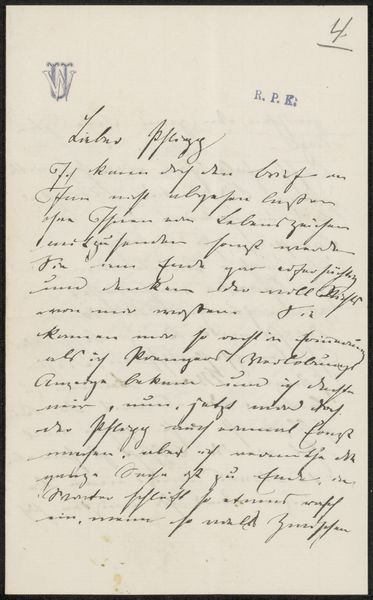 4
W
R. P. K.
Lieber Pfligg
Ich kann doch den Brief an
Ihnen nicht abgehen lassen
ohne Ihnen ein Lebenszeichen
mitzusenden sonst werden
Sie am Ende gar eifersüchtig
und denken der will Nichts
von mir wissen. Sie
kamen mir so recht in Erinnerung
als ich Verlobungs
Anzeige bekam und ich dachte
mir, nun, jetzt wird doch
der Pfligg auch einmal Ernst
machen, aber ich vermuthe die
ganze Sache ist zu Ende, im
Winter schläft so etwas rasch
ein, wenn so viel Zwischen